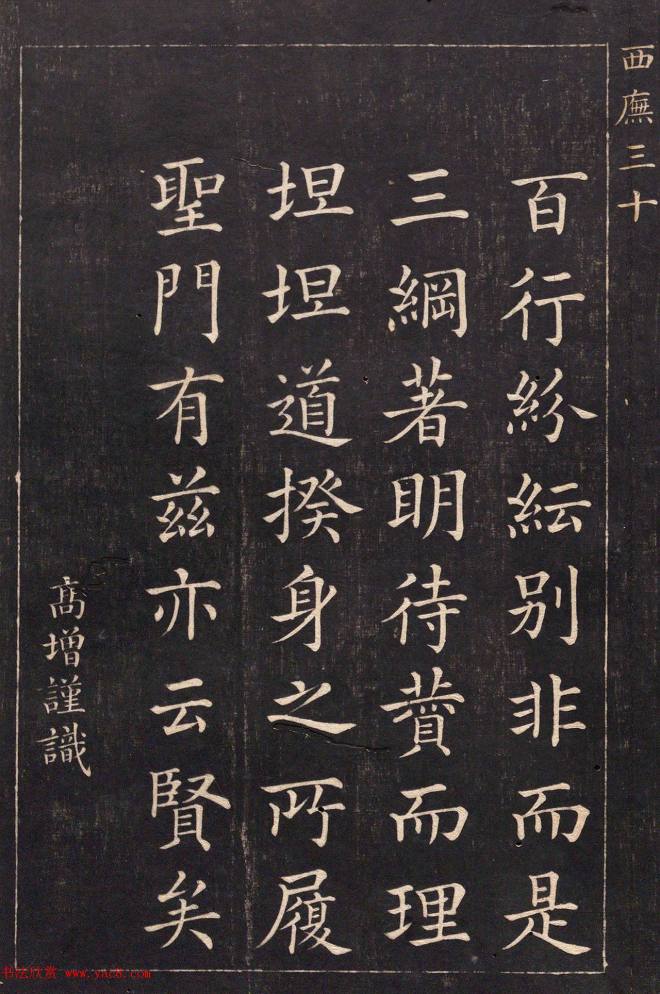 西廡三十
百行紛紜别非而是
三綱著眀待而理
坦坦道揆身之所履
聖門有兹亦云賢矣
髙增謹識
书法欣赏 www.yac8.com